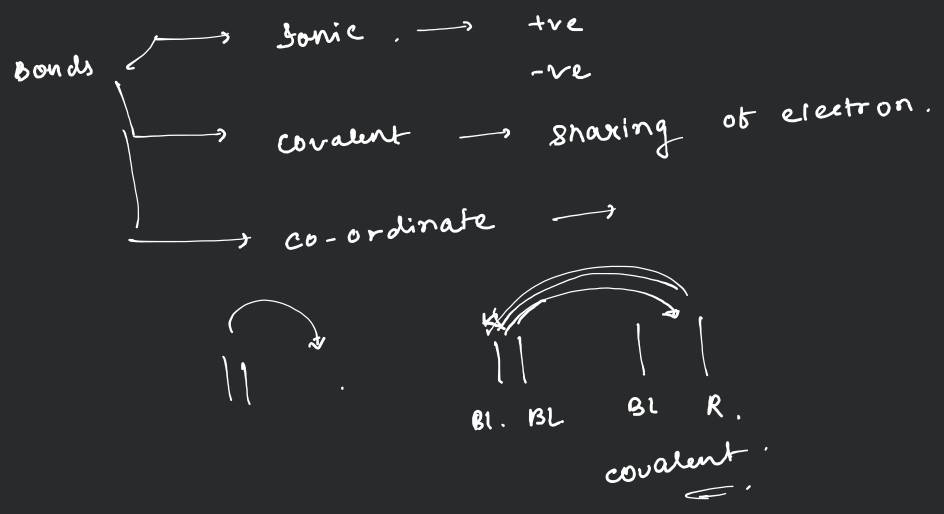 Bonds → Ionic . → +ve
-ve
covalent → sharing of electron.
co-ordinate →
Bl. BL Bl R.
covalent.